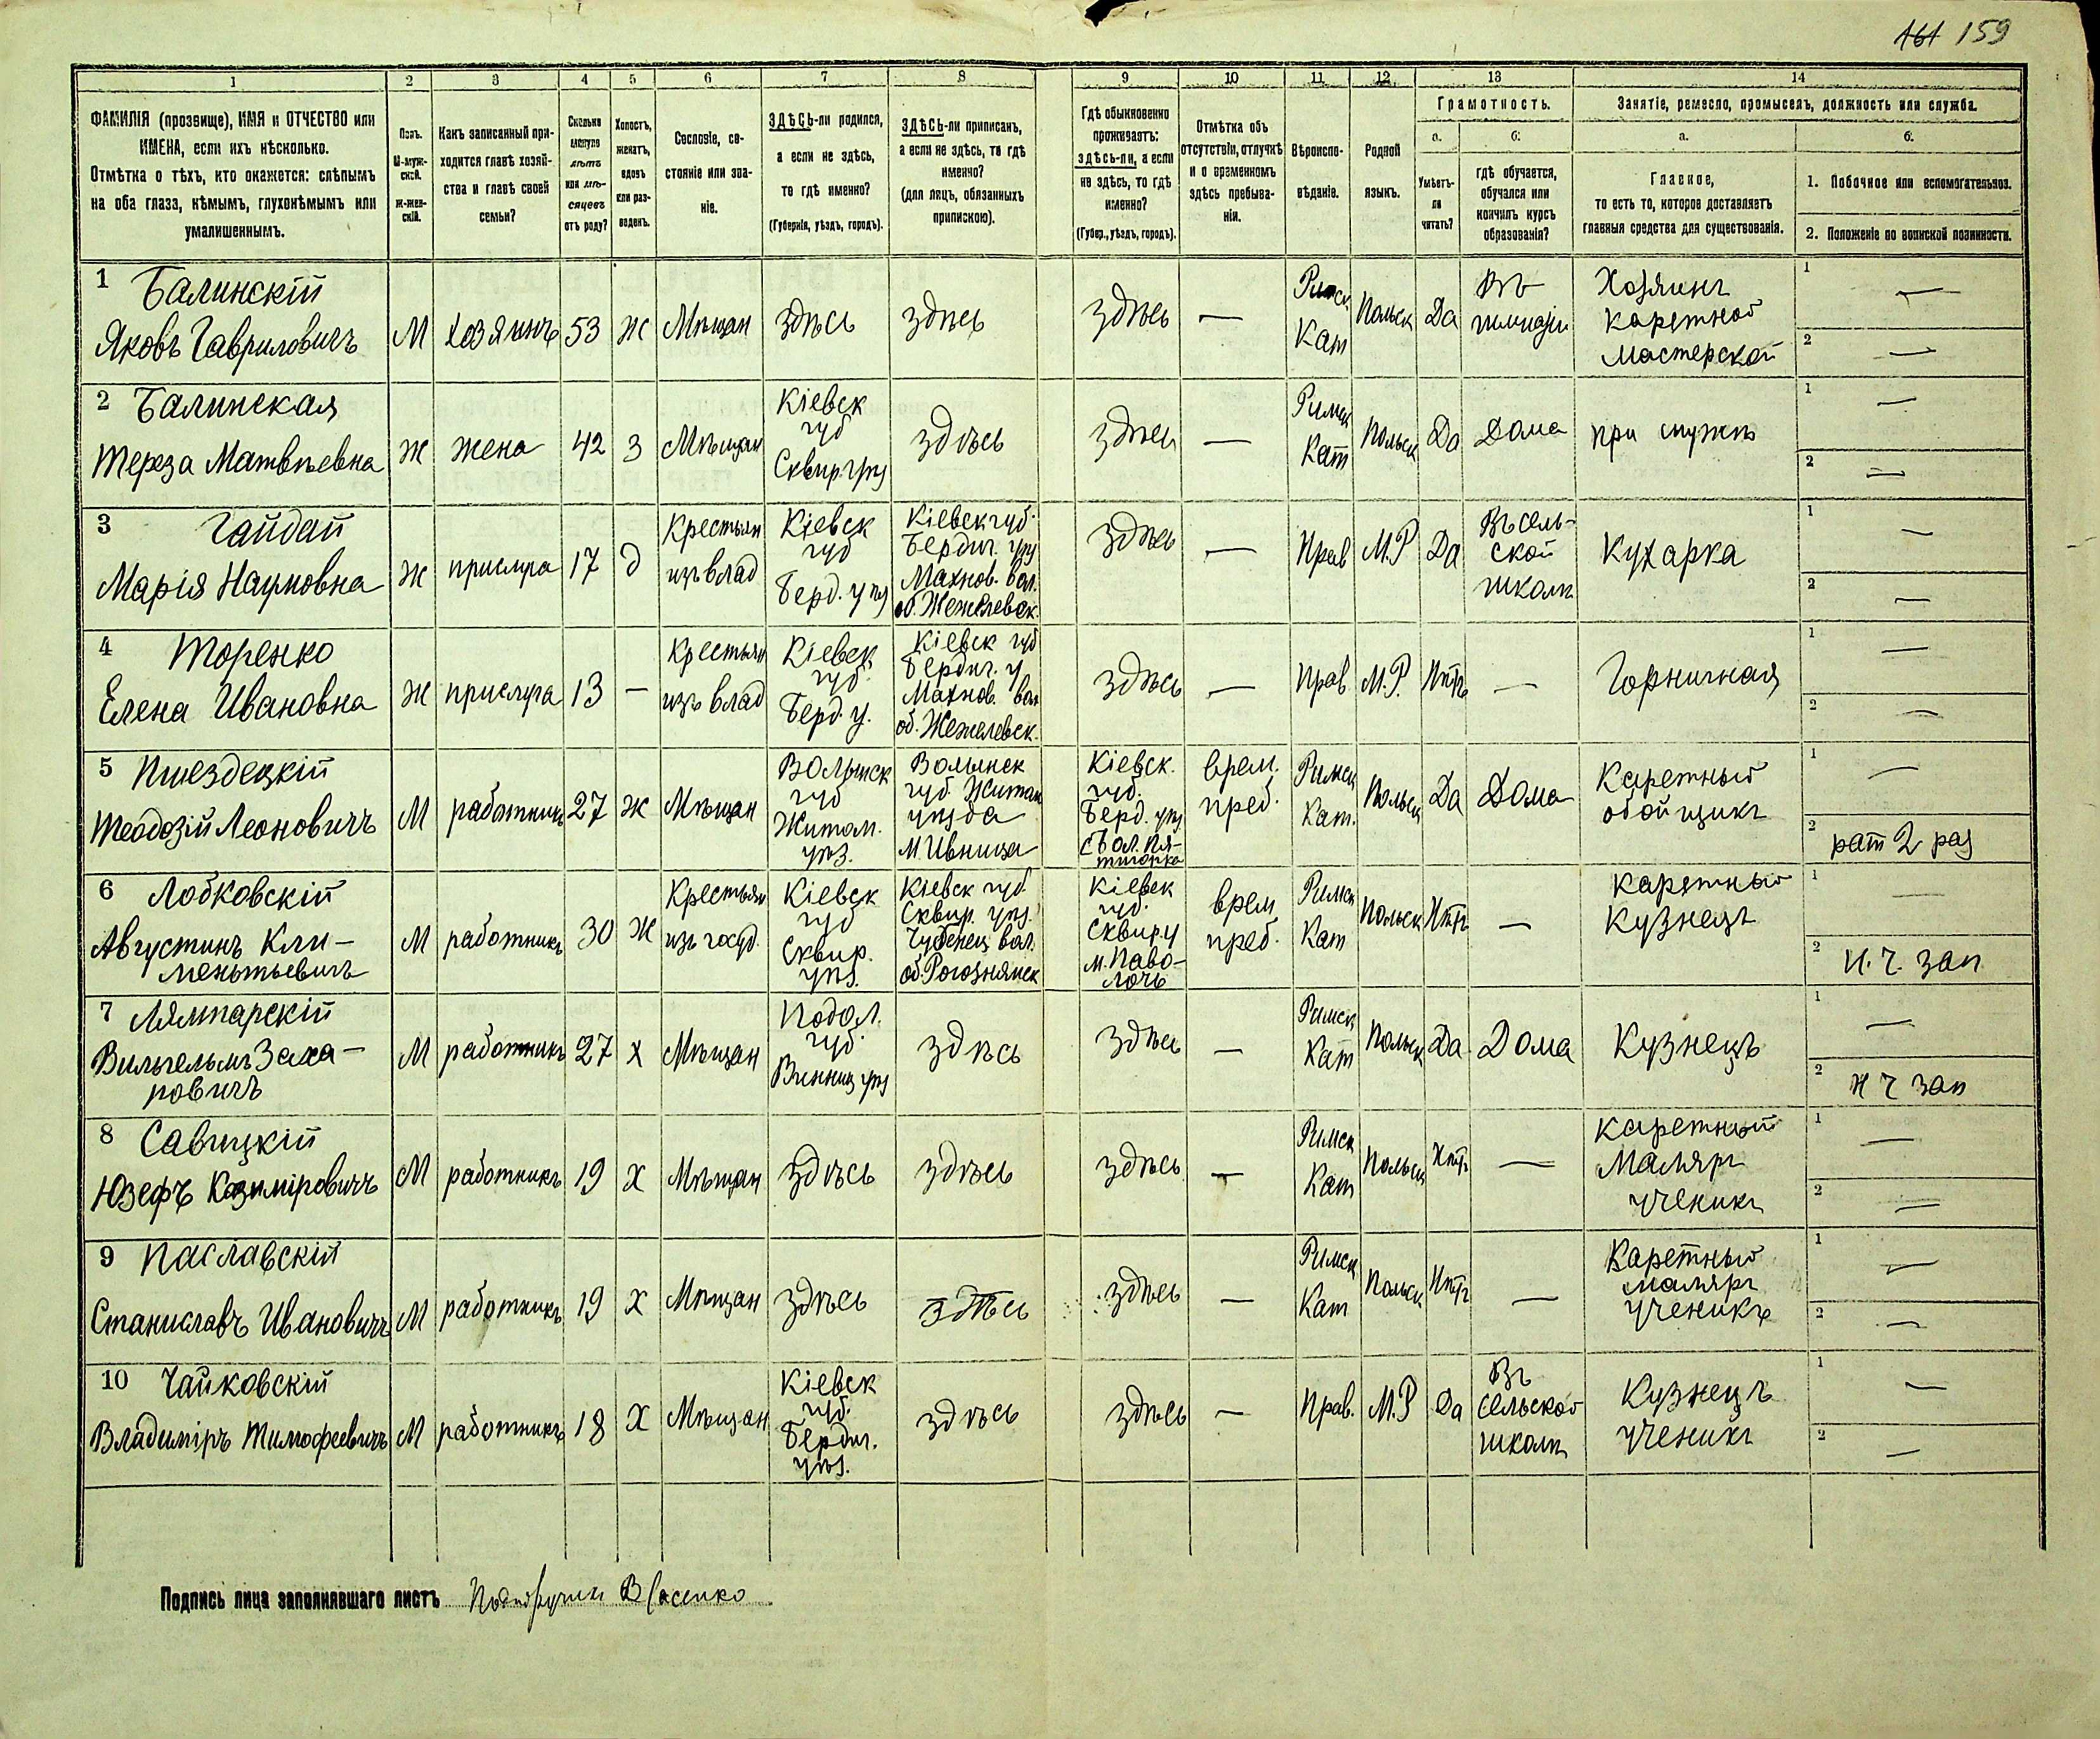 161 159
1 2 3 4 5 6 7 8 9 10 11 12 13 14
ФАМИЛІЯ (прозвище), ИМЯ и ОТЧЕСТВО или
ИМЕНА, если ихъ нѣсколько.
Отмѣтка о тѣхъ, кто окажется: слѣпымъ
на оба глаза, нѣмымъ, глухонѣмымъ или
умалишеннымъ.
Полъ.
М-муж-
ской.
Ж-жен-
скій.
Какъ записанный при-
ходится главѣ хозяй-
ства и главѣ своей
семьи?
Сколько
минуло
лѣтъ
или мѣ-
сяцевъ
отъ роду?
Холостъ,
женатъ,
вдовъ
или раз-
веденъ.
Сословіе, со-
стояніе или зва-
ніе.
ЗДѢСЬ-ли родился,
а если не здѣсь,
то гдѣ именно?
(Губернія, уѣздъ, городъ).
ЗДѢСЬ-ли приписанъ,
а если не здѣсь, то гдѣ
именно?
(для лицъ, обязанныхъ
припискою).
Гдѣ обыкновенно
проживаетъ:
здѣсь-ли, а если
не здѣсь, то гдѣ
именно?
(Губер., уѣздъ, городъ).
Отмѣтка объ
отсутствіи, отлучкѣ
и о временномъ
здѣсь пребыва-
ніи.
Вѣроиспо-
вѣданіе.
Родной
языкъ.
Грамотность.
а.
Умѣетъ-
ли
читать?
б.
гдѣ обучается,
обучался или
кончилъ курсъ
образованія?
Занятіе, ремесло, промыселъ, должность или служба.
а.
Главное,
то есть то, которое доставляетъ
главныя средства для существованія.
б.
1. Побочное или вспомогательное.
2. Положеніе по воинской повинности.
1 Балинскій
Яковъ Гавриловичъ
М
хозяинъ
53
Ж
Мѣщан
здѣсь
здѣсь
здѣсь
—
Римск
Кат
Польск
Да
Въ
гимназіи
Хозяинъ
каретной
мастерской
1 —
2 —
2 Балинская
Тереза Матвѣевна
Ж
жена
42
З
Мѣщан
Кіевск
губ
Сквир. уѣз
здѣсь
здѣсь
—
Римск
Кат
Польск
Да
Дома
при мужѣ
1 —
2 —
3 Гайдай
Марія Наумовна
Ж
прислуга
17
д
Крестьян
изъ влад
Кіевск
губ
Берд. уѣз
Кіевск губ.
Бердич. уѣз
Махнов. вол.
об. Жежелевск.
здѣсь
—
Прав
М.Р
Да
Въ сель-
ской
школѣ
Кухарка
1 —
2 —
4 Торенко
Елена Ивановна
Ж
прислуга
13
—
Крестьян
изъ влад
Кіевск.
губ.
Берд. у.
Кіевск губ
Бердич. у.
Махнов. вол
об. Жежелевск.
здѣсь
—
Прав
М.Р.
Нѣтъ
—
Горничная
1 —
2 —
5 Пшездецкій
Теодозій Леоновичъ
М
работникъ
27
Ж
Мѣщан
Волынск
губ
Житом.
уѣз.
Волынск
губ. Житом
уѣзда
м. Ивница
Кіевск.
губ.
Берд. уѣз.
врем.
преб.
Римск
Кат.
Польск
Да
Дома
Каретный
обойщикъ
1 —
2 рат 2 раз
6 Лобковскій
Августинъ Кли-
ментьевичъ
М
работникъ
30
Ж
Крестьян
изъ госуд.
Кіевск
губ
Сквир.
уѣз.
Кіевск губ.
Сквир. уѣз.
вол.
Кіевск
губ.
Сквир. у
м. Паво-
лочь
врем
преб.
Римск
Кат
Польск
Нѣтъ
—
каретный
Кузнецъ
1 —
2 Н. Ч. зап
7 Лямпарскій
Вильгельмъ Заха-
ровичъ
М
работникъ
27
Х
Мѣщан
Подол.
губ.
Винниц уѣз
здѣсь
здѣсь
—
Римск
Кат
Польск
Да
Дома
Кузнецъ
1 —
2 Н Ч зап
8 Савицкій
Юзефъ Казиміровичъ
М
работникъ
19
Х
Мѣщан
здѣсь
здѣсь
здѣсь
—
Римск
Кат
Польск
Нѣтъ
—
каретный
маляръ
ученикъ
1 —
2 —
9 Паславскій
Станиславъ Ивановичъ
М
работникъ
19
Х
Мѣщан
здѣсь
здѣсь
здѣсь
—
Римск
Кат
Польск
Нѣтъ
—
Каретный
маляръ
ученикъ
1 —
2 —
10 Чайковскій
Владиміръ Тимофеевичъ
М
работникъ
18
Х
Мѣщан
Кіевск
губ.
Бердич.
уѣз.
здѣсь
здѣсь
—
Прав.
М.Р
Да
Въ
сельской
школѣ
Кузнецъ
Ученикъ
1 —
2 —
Подпись лица заполнявшаго листъ